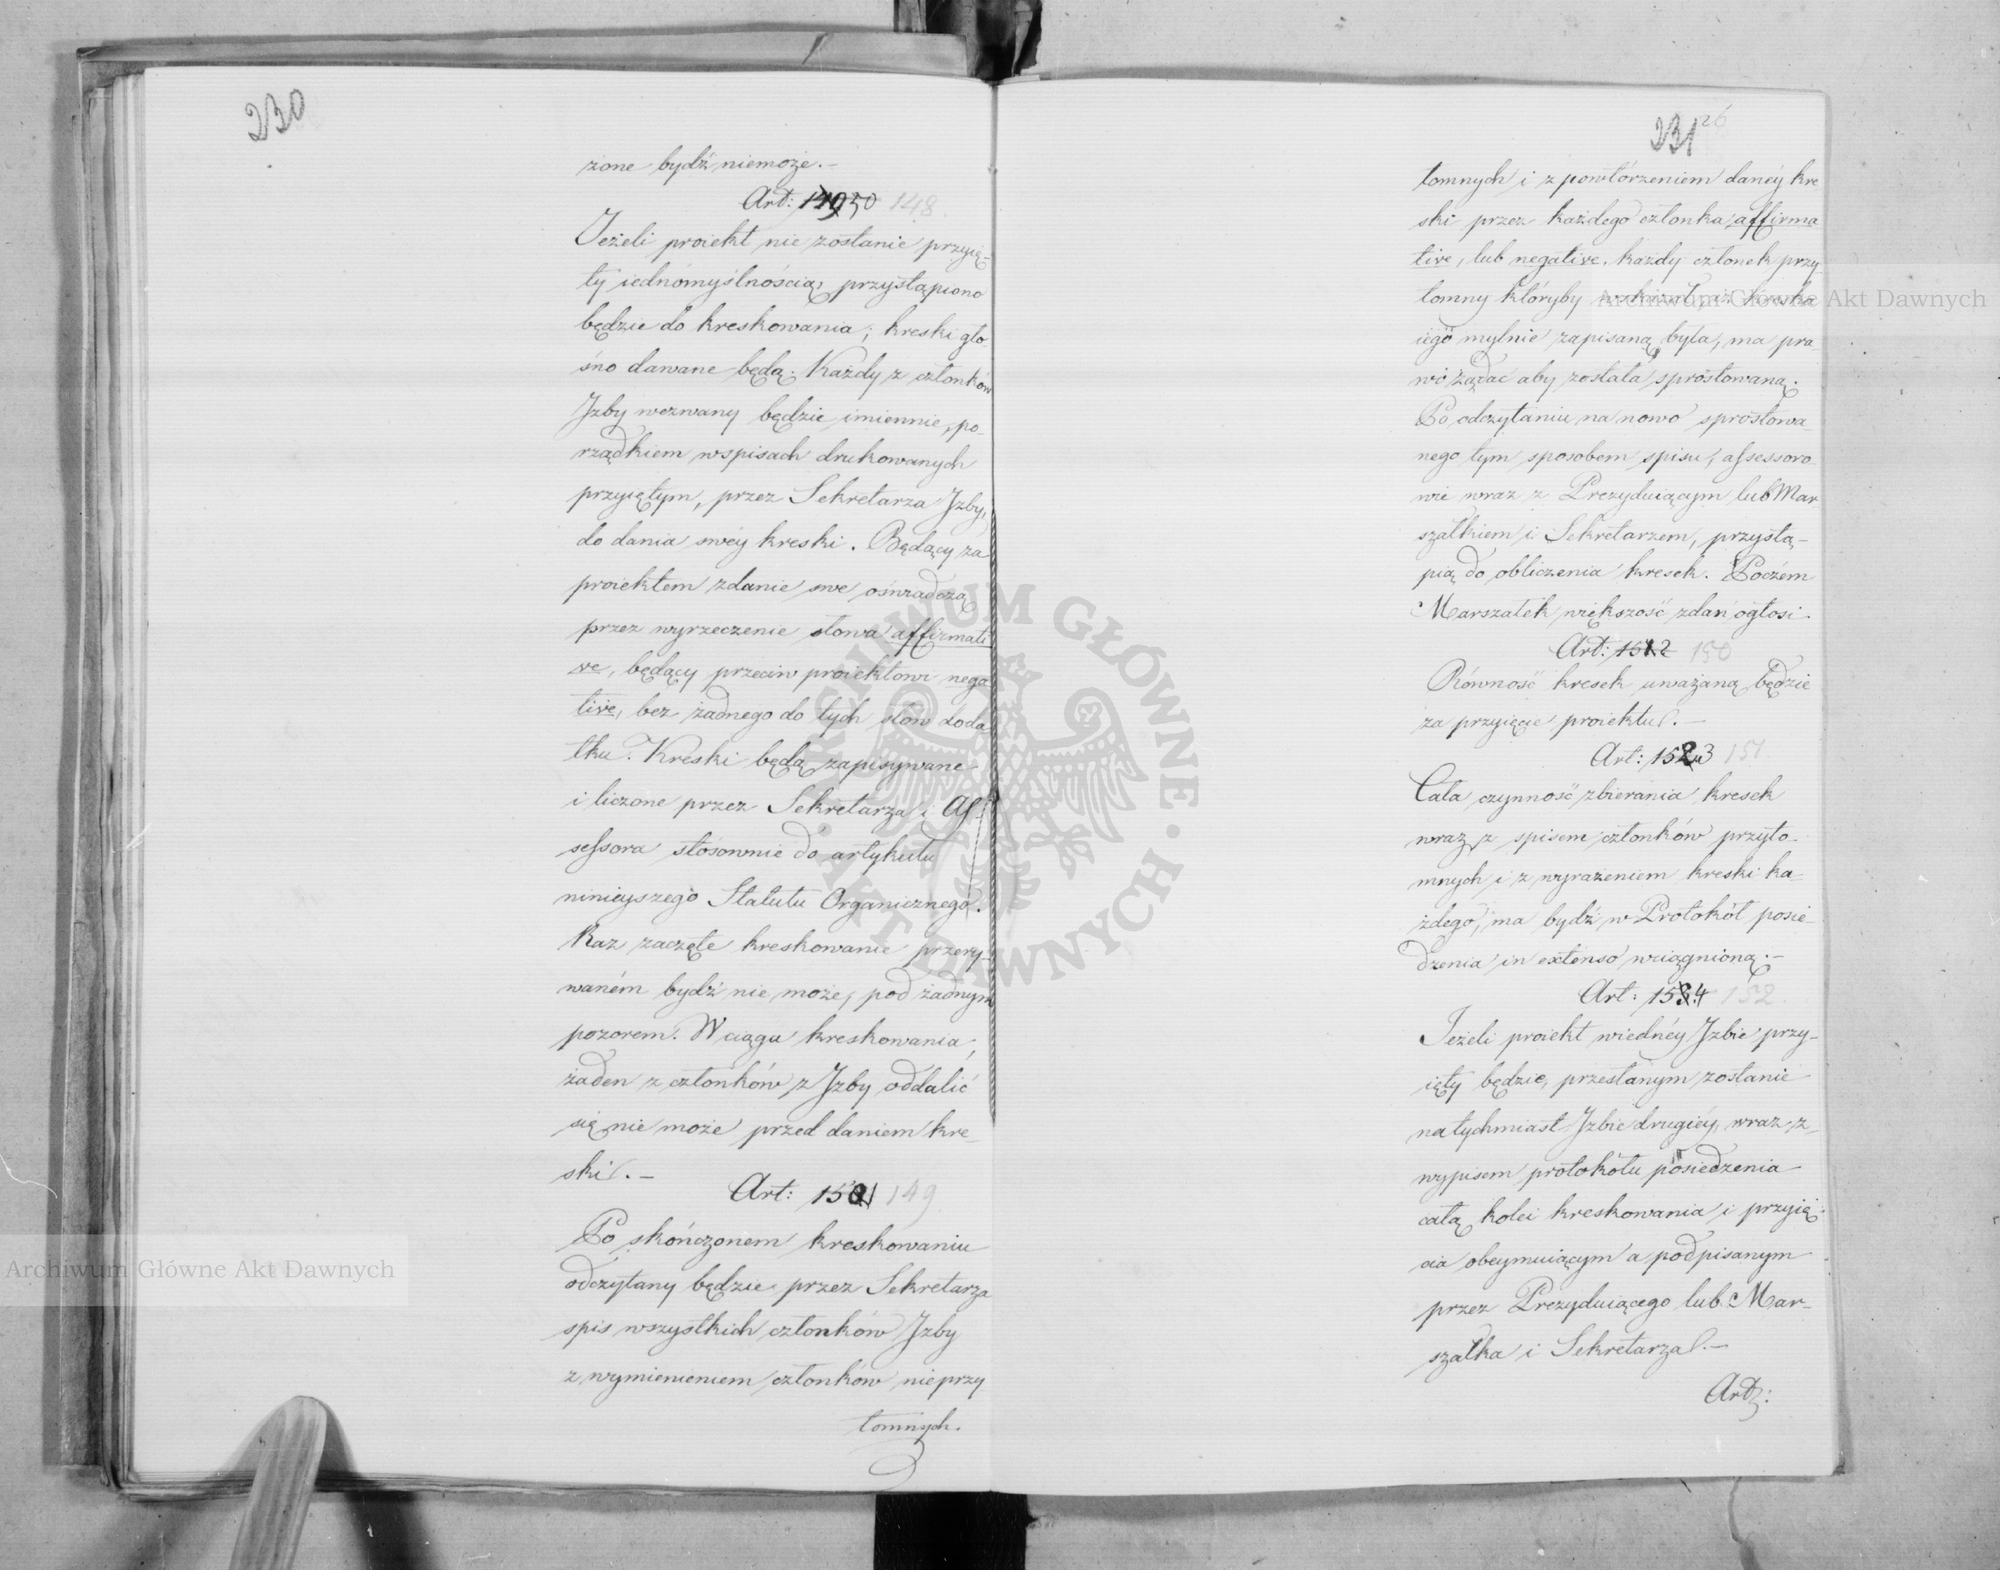 230
żone bydź niemoże.—
Art: 14950 148.
Jeżeli proiekt nie zostanie przyię-
ty iednomyślnością, przystąpiono
będzie do kreskowania; kreski gło-
śno dawane będą. Każdy z członków
Izby wezwany będzie imiennie, po-
rządkiem wspisach drukowanych
przyiętym, przez Sekretarza Izby,
do dania swey kreski. Będący za
proiektem zdanie swe oświadczą
przez wyrzeczenie słowa affirmati
ve, będący przeciw proiektowi nega
tive, bez żadnego do tych słów doda
tku. Kreski będą zapisywane
i liczone przez Sekretarza i As-
sessora stosownie do artykułu
ninieyszego Statutu Organicznego.
Raz zaczęte kreskowanie przery-
waném bydź nie może, pod żadnym
pozorem. W ciągu kreskowania,
żaden z członków z Izby oddalić
się nie może przed daniem kre-
ski.—
Art: 1501 149
Po skończonem kreskowaniu
odczytany będzie przez Sekretarza
spis wszystkich członków Izby
z wymienieniem członków nieprzy
tomnych.
231 26
tomnych i z powtórzeniem daney kre
ski przez każdego członka affirma
tive, lub negative. Każdy członek przy
tomny któryby wskazał, iż kreska
iego mylnie zapisaną była, ma pra-
wo żądać aby została sprostowaną.
Po odczytaniu na nowo sprostowa-
nego tym sposobem spisu, assessoro-
wie wraz z Prezyduiącym lub Mar-
szałkiem i Sekretarzem, przystą-
pią do obliczenia kresek. Poczém
Marszałek większość zdań ogłosi.
Art: 1512 150
Równość kresek uważaną będzie
za przyięcie proiektu.—
Art: 1523 151
Cała czynność zbierania kresek
wraz z spisem członków przyto-
mnych i z wyrażeniem kreski ka-
żdego, ma bydź w Protokół posie-
dzenia in extenso wciągnioną.—
Art: 1534 152.
Jeżeli proiekt wiednéy Izbie przy-
ięty będzie, przesłanym zostanie
natychmiast Izbie drugiéy, wraz z
wypisem protokółu posiedzenia
całą kolei kreskowania i przyię-
cia obeymuiącym a podpisanym
przez Prezyduiącego lub Mar-
szałka i Sekretarza.—
Art:
Archiwum Główne Akt Dawnych
Archiwum Główne Akt Dawnych
ARCHIWUM GŁÓWNE · AKT DAWNYCH ·